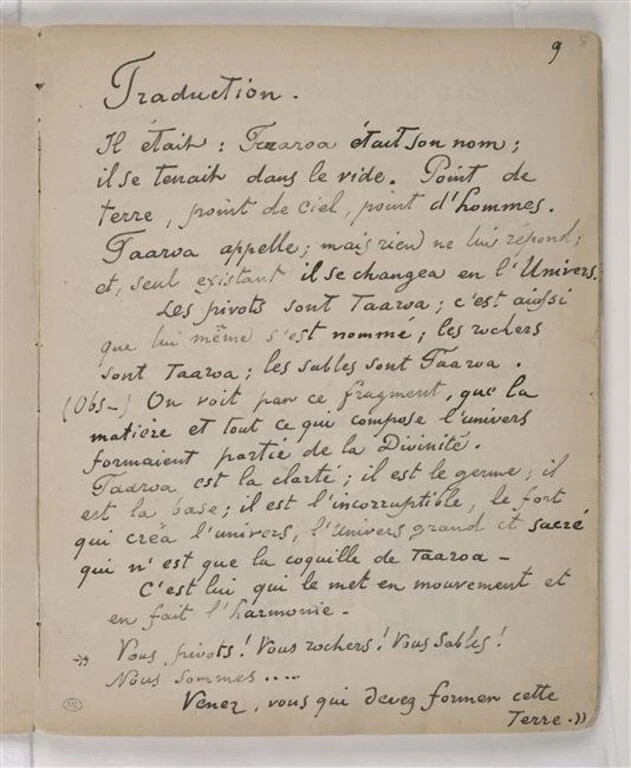 9 5
Traduction.
Il était : Taaroa était son nom ;
il se tenait dans le vide. Point de
terre, point de ciel, point d'hommes.
Taaroa appelle ; mais rien ne lui répond ;
et, seul existant il se changea en l'Univers.
Les pivots sont Taaroa ; c'est ainsi
que lui même s'est nommé ; les rochers
sont Taaroa ; les sables sont Taaroa.
(Obs_) On voit par ce fragment, que la
matière et tout ce qui compose l'univers
formaient partie de la Divinité.
Taaroa est la clarté ; il est le germe ; il
est la base ; il est l'incorruptible, le fort
qui créa l'univers, l'Univers grand et sacré
qui n'est que la coquille de Taaroa _
C'est lui qui le met en mouvement et
en fait l'harmonie _
Vous pivots ! Vous rochers ! Vous sables !
Nous sommes .....
Venez, vous qui devez former cette
Terre. »